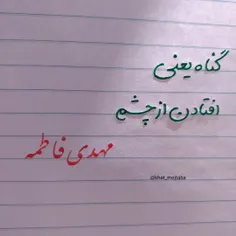 گناه یعنی
افتادن از چشم
مهدی فاطمه